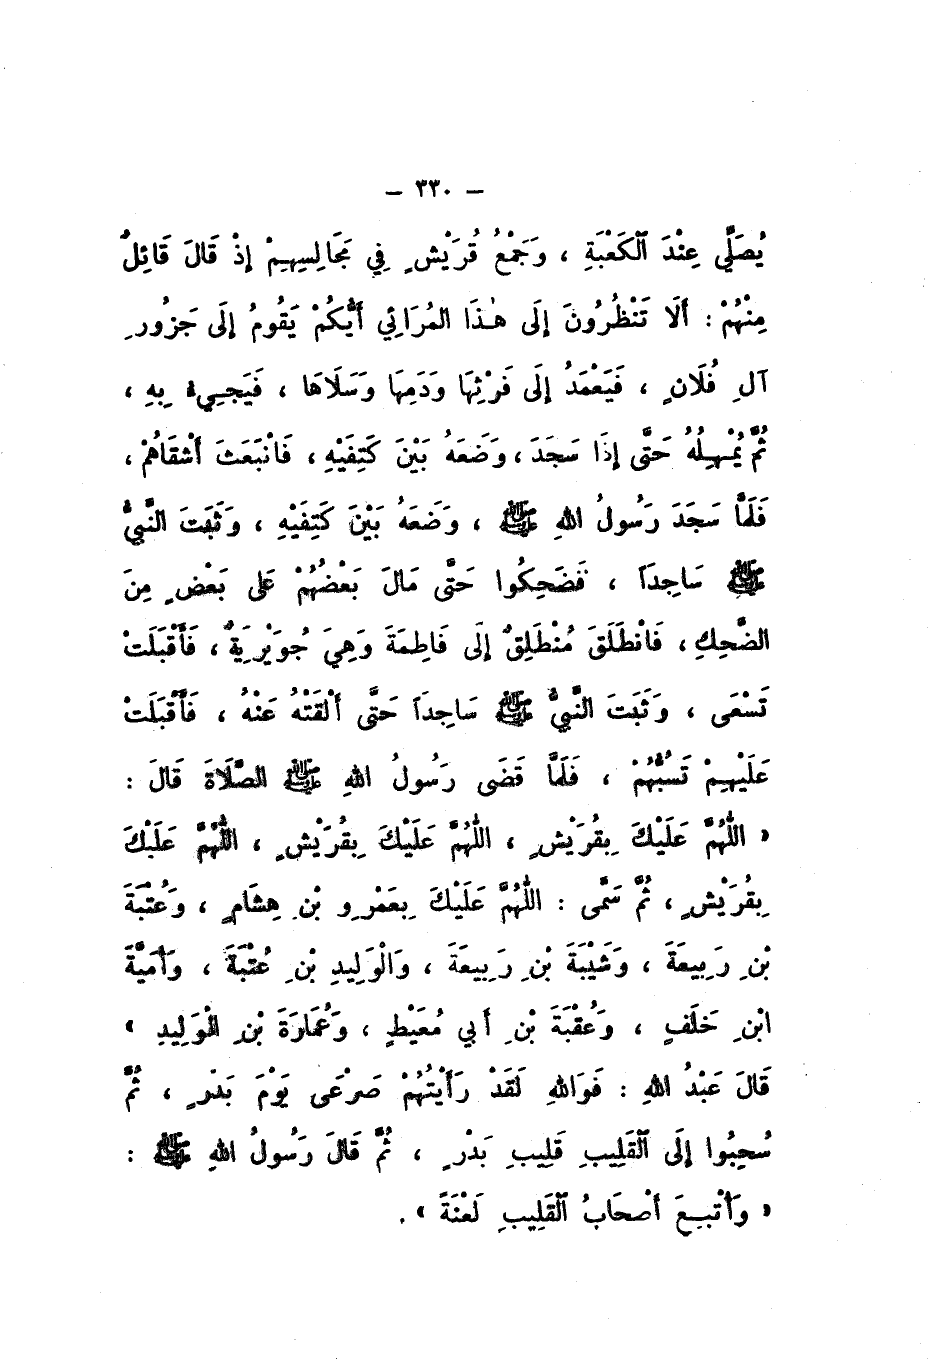 – ٣٣٠ –
يُصَلِّي عِنْدَ ٱلْكَعْبَةِ ، وَجَمْعُ قُرَيْشٍ فِي مَجَالِسِهِمْ إِذْ قَالَ قَائِلٌ
مِنْهُمْ : أَلَا تَنْظُرُونَ إِلَى هٰذَا المُرَائِي أَيُّكُمْ يَقُومُ إِلَى جَزُورِ
آلِ فُلَانٍ ، فَيَعْمَدُ إِلَى فَرْثِهَا وَدَمِهَا وَسَلَاهَا ، فَيَجِيءُ بِهِ ،
ثُمَّ يُمْهِلُهُ حَتَّى إِذَا سَجَدَ ، وَضَعَهُ بَيْنَ كَتِفَيْهِ ، فَانْبَعَثَ أَشْقَاهُمْ ،
فَلَمَّا سَجَدَ رَسُولُ اللهِ ﷺ ، وَضَعَهُ بَيْنَ كَتِفَيْهِ ، وَثَبَتَ النَّبِيُّ
ﷺ سَاجِدَاً ، فَضَحِكُوا حَتَّى مَالَ بَعْضُهُمْ عَلَى بَعْضٍ مِنَ
الضَّحِكِ ، فَانْطَلَقَ مُنْطَلِقٌ إِلَى فَاطِمَةَ وَهِيَ جُوَيْرِيَةٌ ، فَأَقْبَلَتْ
تَسْعَى ، وَثَبَتَ النَّبِيُّ ﷺ سَاجِدَاً حَتَّى أَلْقَتْهُ عَنْهُ ، فَأَقْبَلَتْ
عَلَيْهِمْ تَسُبُّهُمْ ، فَلَمَّا قَضَى رَسُولُ اللهِ ﷺ الصَّلَاةَ قَالَ :
« اللّٰهُمَّ عَلَيْكَ بِقُرَيْشٍ ، اللّٰهُمَّ عَلَيْكَ بِقُرَيْشٍ ، اللّٰهُمَّ عَلَيْكَ
بِقُرَيْشٍ ، ثُمَّ سَمَّى : اللّٰهُمَّ عَلَيْكَ بِعَمْرِو بْنِ هِشَامٍ ، وَعُتْبَةَ
بْنِ رَبِيعَةَ ، وَشَيْبَةَ بْنِ رَبِيعَةَ ، وَالْوَلِيدِ بْنِ عُتْبَةَ ، وَأُمَيَّةَ
ابْنِ خَلَفٍ ، وَعُقْبَةَ بْنِ أَبي مُعَيْطٍ ، وَعُمَارَةَ بْنِ الْوَلِيدِ »
قَالَ عَبْدُ اللهِ : فَوَاللهِ لَقَدْ رَأَيْتُهُمْ صَرْعَى يَوْمَ بَدْرٍ ، ثُمَّ
سُحِبُوا إِلَى ٱلْقَلِيبِ قَلِيبِ بَدْرٍ ، ثُمَّ قَالَ رَسُولُ اللهِ ﷺ :
« وَأُتْبِعَ أَصْحَابُ ٱلْقَلِيبِ لَعْنَةً » .